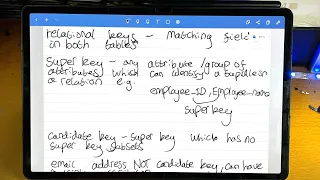 relational keys - matching field
in both tables
Super key - any attribute/group of
attributes which can identify a tuple in
a relation e.g.
employee_ID, Employee_name
superkey
candidate key - super key which has no
super key subsets
email address NOT candidate key, can have